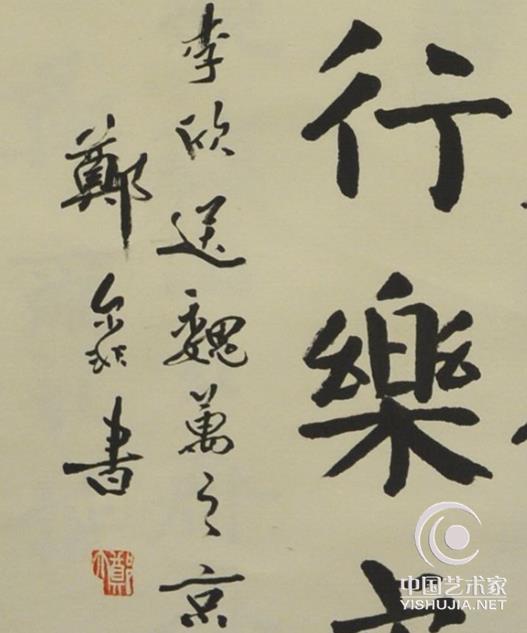 行樂
李欣送魏萬之京
鄭書
中国艺术家
YISHUJIA.NET